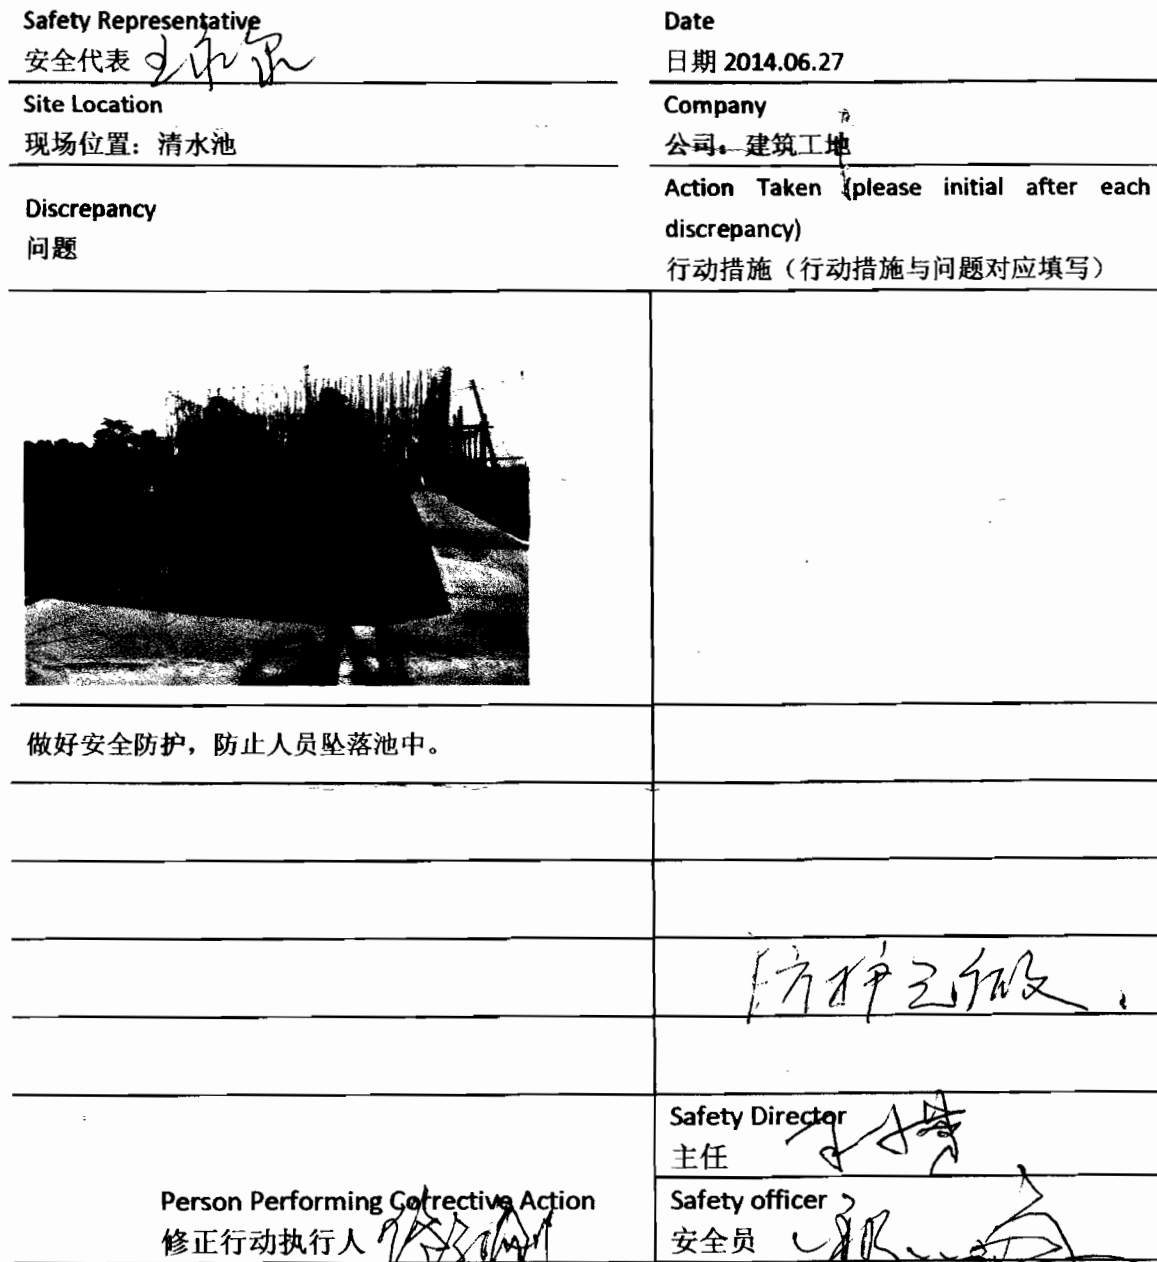 Safety Representative
安全代表
Date
日期 2014.06.27
Site Location
现场位置：清水池
Company
公司：建筑工地
Discrepancy
问题
Action Taken (please initial after each
discrepancy)
行动措施（行动措施与问题对应填写）
做好安全防护，防止人员坠落池中。
防护已做.
Safety Director
主任
Person Performing Corrective Action
修正行动执行人
Safety officer
安全员